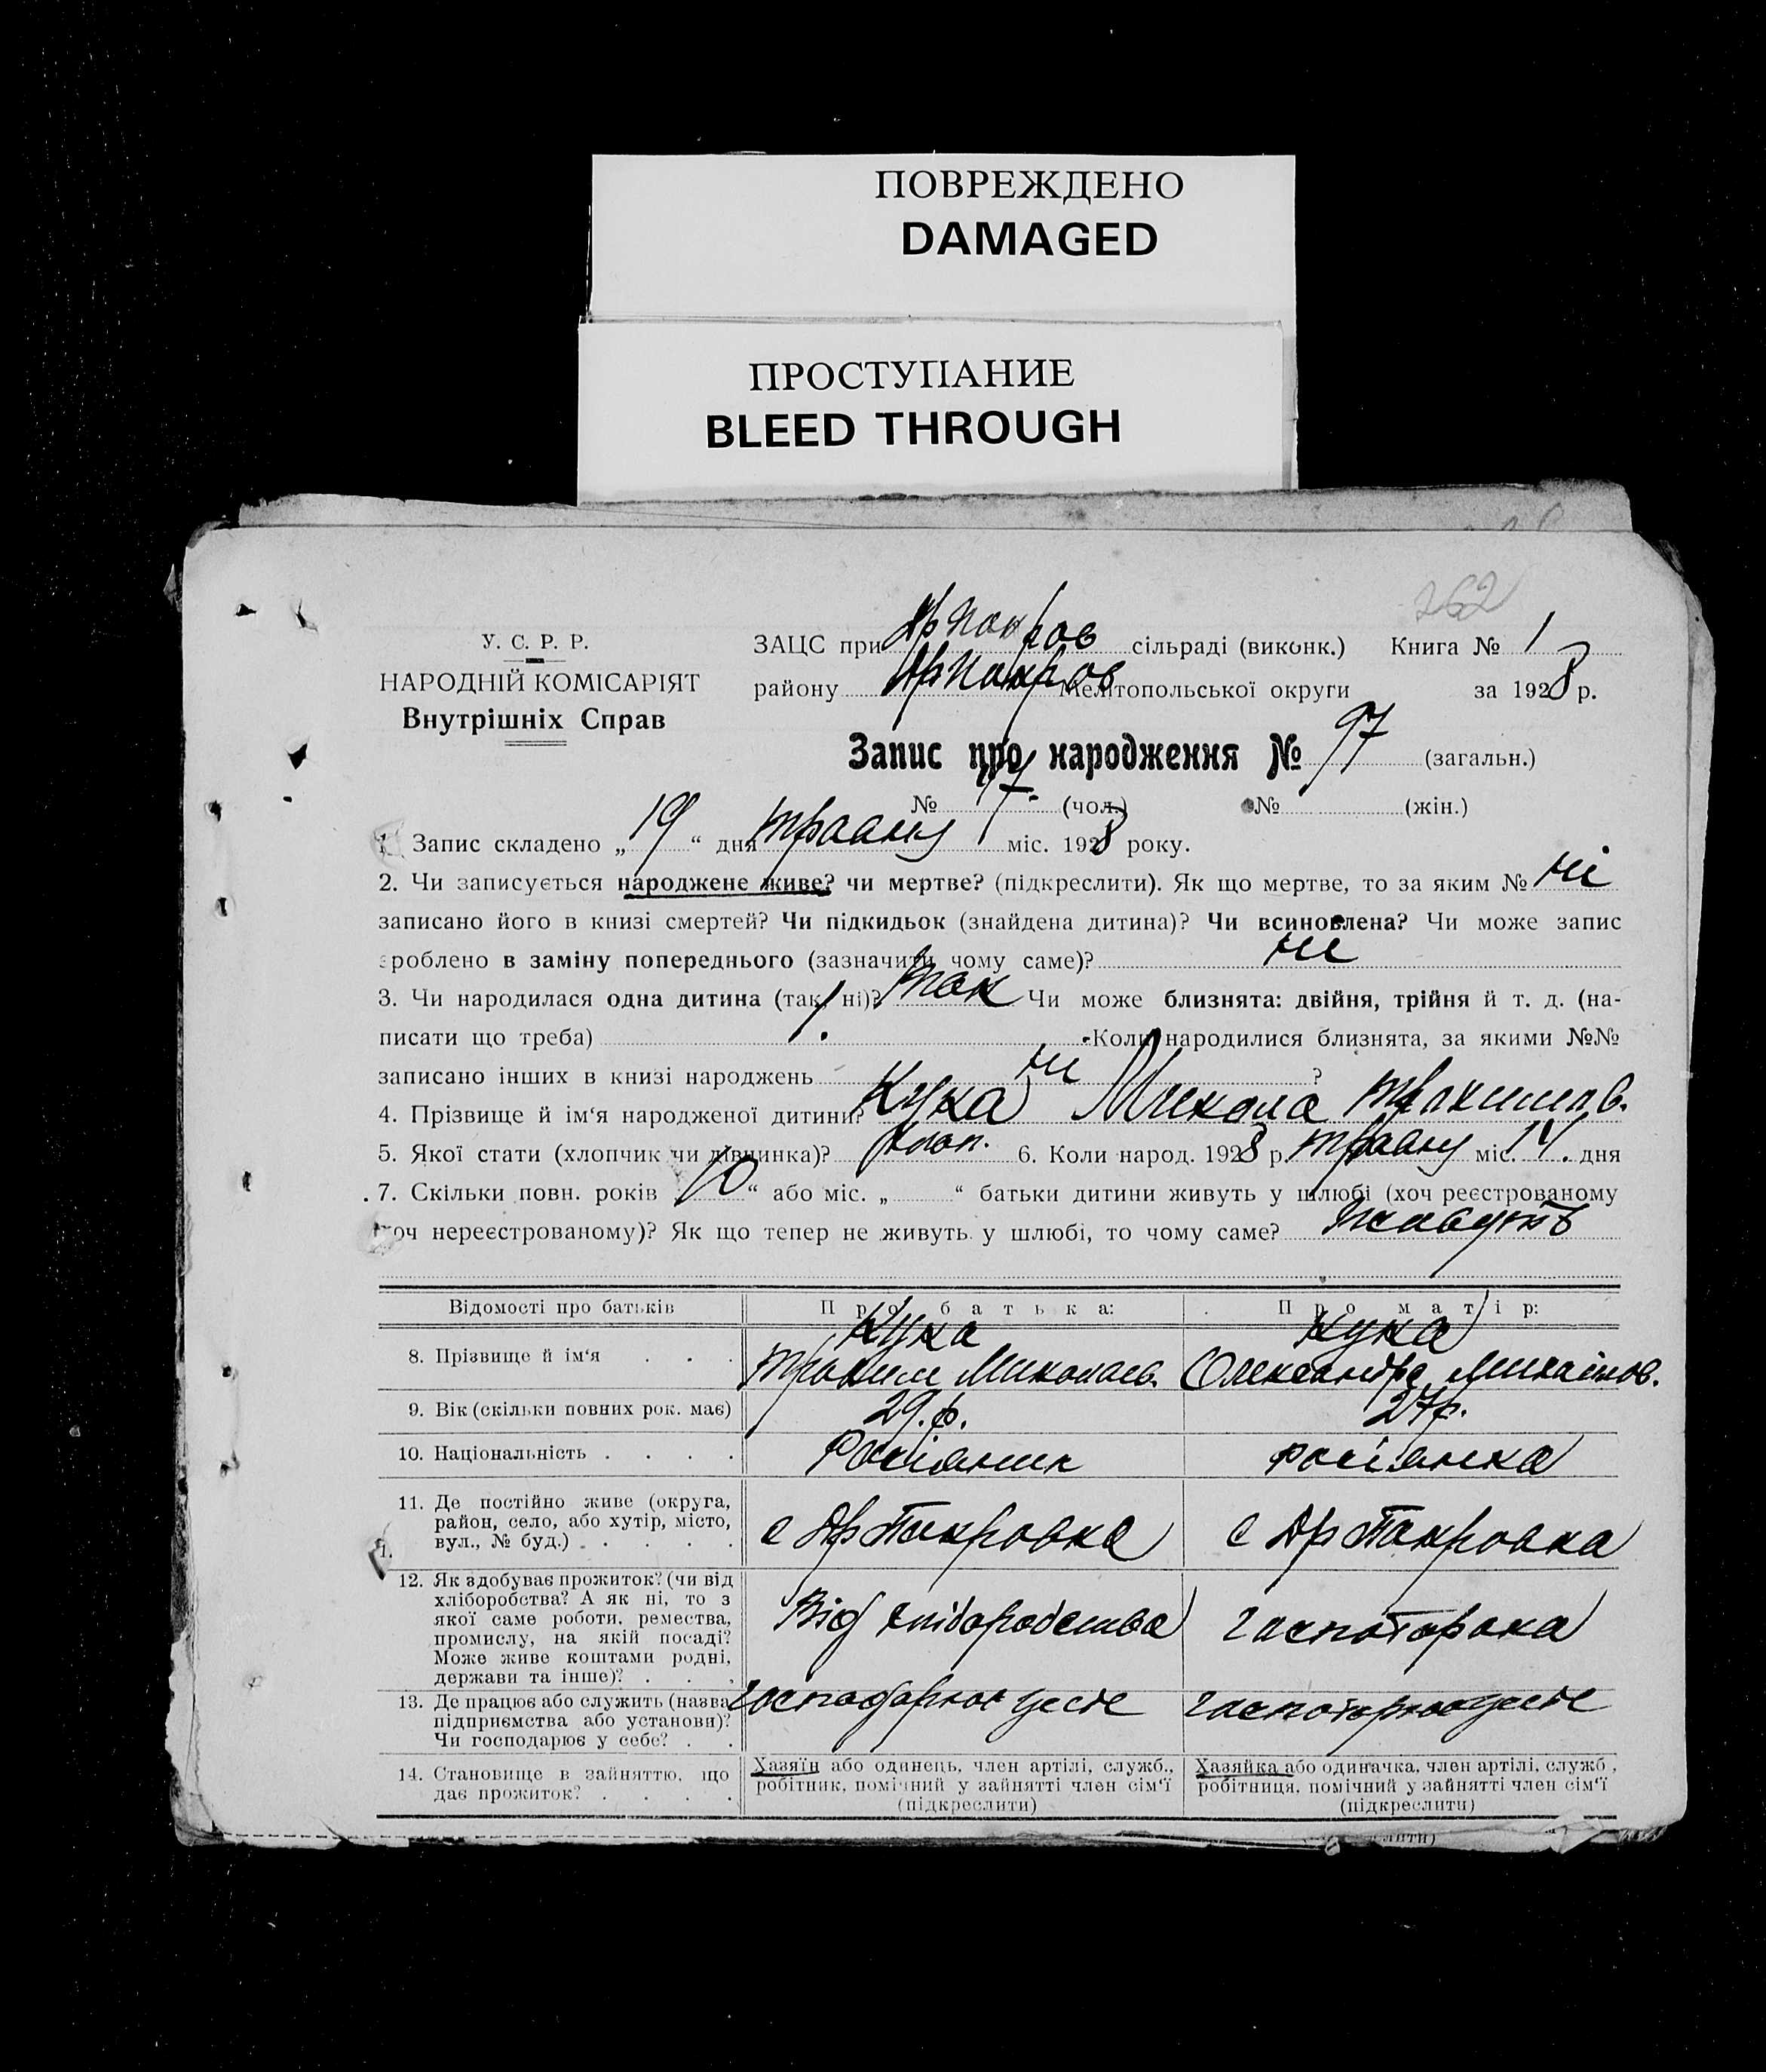 ПОВРЕЖДЕНО
DAMAGED
ПРОСТУПАНИЕ
BLEED THROUGH
262
У. С. Р. Р.
НАРОДНІЙ КОМІСАРІЯТ
Внутрішніх Справ
ЗАЦС при Др Покров сільраді (виконк.) Книга № 1
району Др Покров Мелітопольської округи за 1928 р.
Запис про народження № 97 (загальн.)
№ 47. (чол.) № (жін.)
1. Запис складено „19“ дня травня міс. 1928 року.
2. Чи записується народжене живе? чи мертве? (підкреслити). Як що мертве, то за яким № ні
записано його в книзі смертей? Чи підкидьок (знайдена дитина)? Чи всиновлена? Чи може запис
зроблено в заміну попереднього (зазначити чому саме)? ні
3. Чи народилася одна дитина (так, ні)? так Чи може близнята: двійня, трійня й т. д. (на-
писати що треба) 1. Коли народилися близнята, за якими №№
записано інших в книзі народжень ні ?
4. Прізвище й ім‘я народженої дитини? Кука Микола
5. Якої стати (хлопчик чи дівчинка)? хлоп. 6. Коли народ. 1928 р. травня міс. 14. дня
7. Скільки повн. років „10“ або міс. „ “ батьки дитини живуть у шлюбі (хоч реєстрованому
хоч нереєстрованому)? Як що тепер не живуть у шлюбі, то чому саме? живуть
Відомості про батьків Про батька: Про матір:
8. Прізвище й ім‘я . . . Кука Кука
Трохим Миколаєв. Олександра Михайлов.
9. Вік (скільки повних рок. має) 29. р. 27 р.
10. Національність . . . . Росіянин росіянка
11. Де постійно живе (округа,
район, село, або хутір, місто,
вул., № буд.) . . . . . с Др Покровка с Др Покровка
12. Як здобуває прожиток? (чи від
хліборобства? А як ні, то з
якої саме роботи, ремества,
промислу, на якій посаді?
Може живе коштами родні,
держави та інше)? . . . Від хліборобства
13. Де працює або служить (назва
підприємства або установи)?
Чи господарює у себе? . .
14. Становище в зайняттю, що
дає прожиток? . . . .
Хазяїн або одинець, член артілі, служб.,
робітник, помічний у зайнятті член сім‘ї
(підкреслити)
Хазяйка або одиначка, член артілі, служб,
робітниця, помічний у зайнятті член сім‘ї
(підкреслити)